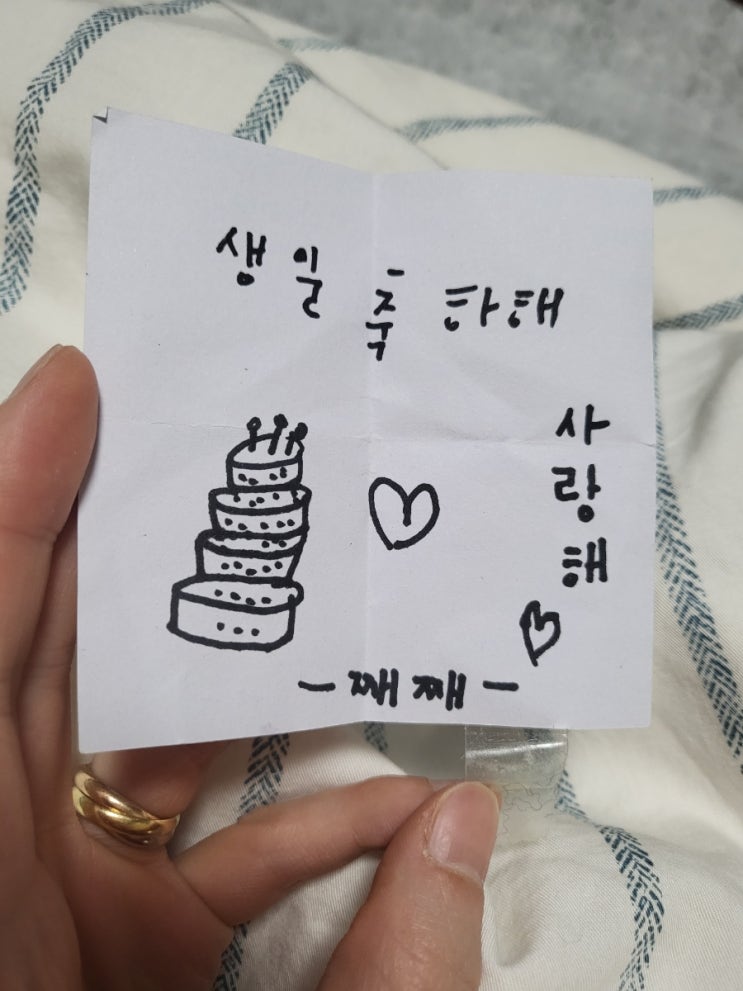 생일 축하해
사
랑
해
— 째째 —